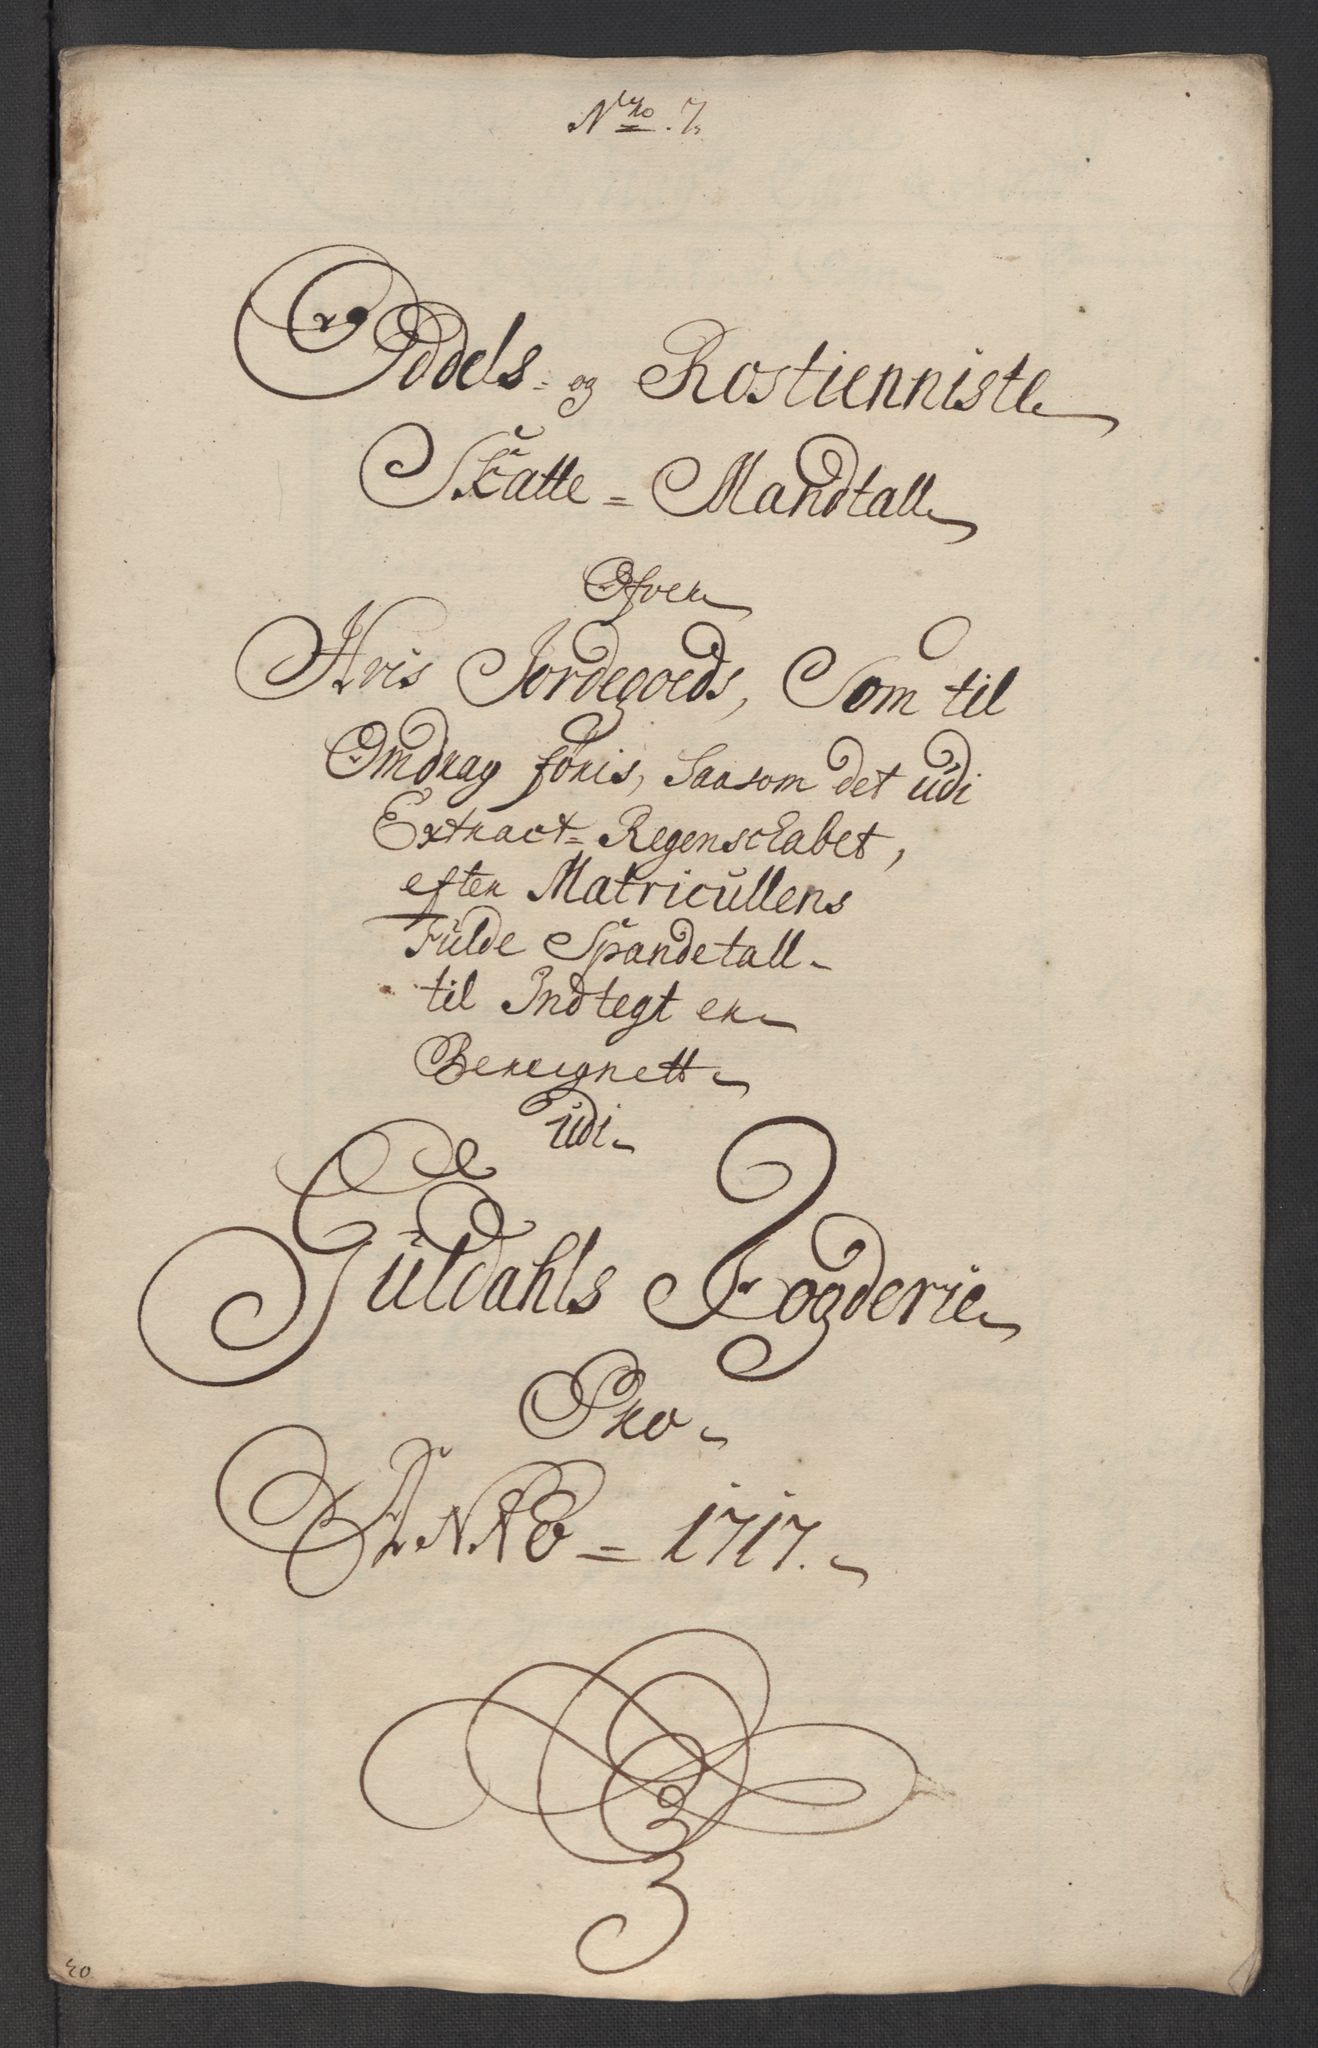 No. 7.
Oddels- og Rostienniste
Skatte = Mandtall
Ofver
Hvis Jordegoeds, Som til
Omdrag føris, Saasom det udi
Extract = Regenschabet,
efter Matricullens
Fulde Spandetall
til Indtegt er
Bereignett
udi
Guldahls Fogderie
Pro
ANNO = 1717.